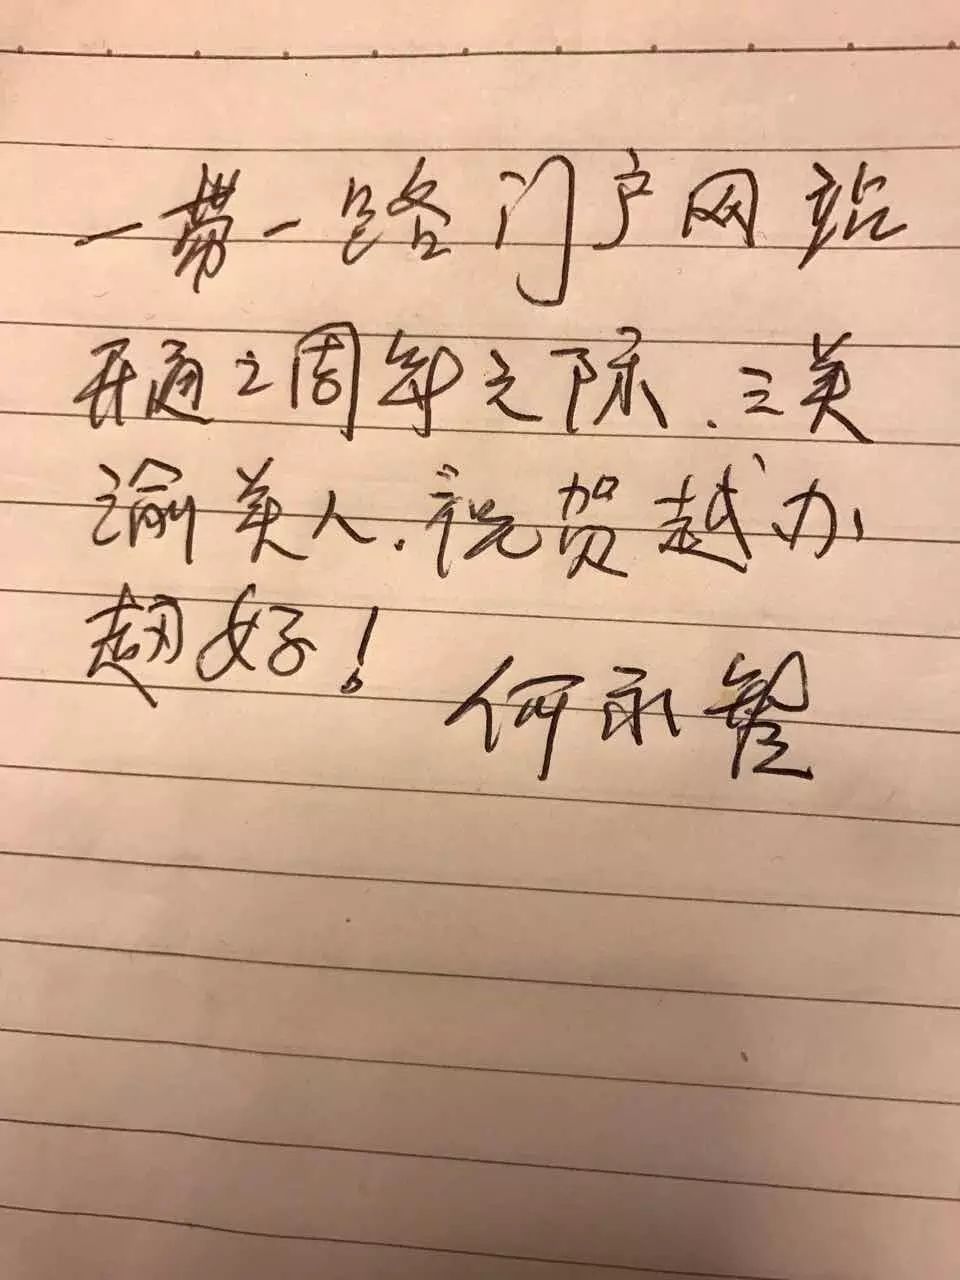 一带一路门户网站
开通之周年之际.三美
渝美人.祝贺越办
越好！
何永智